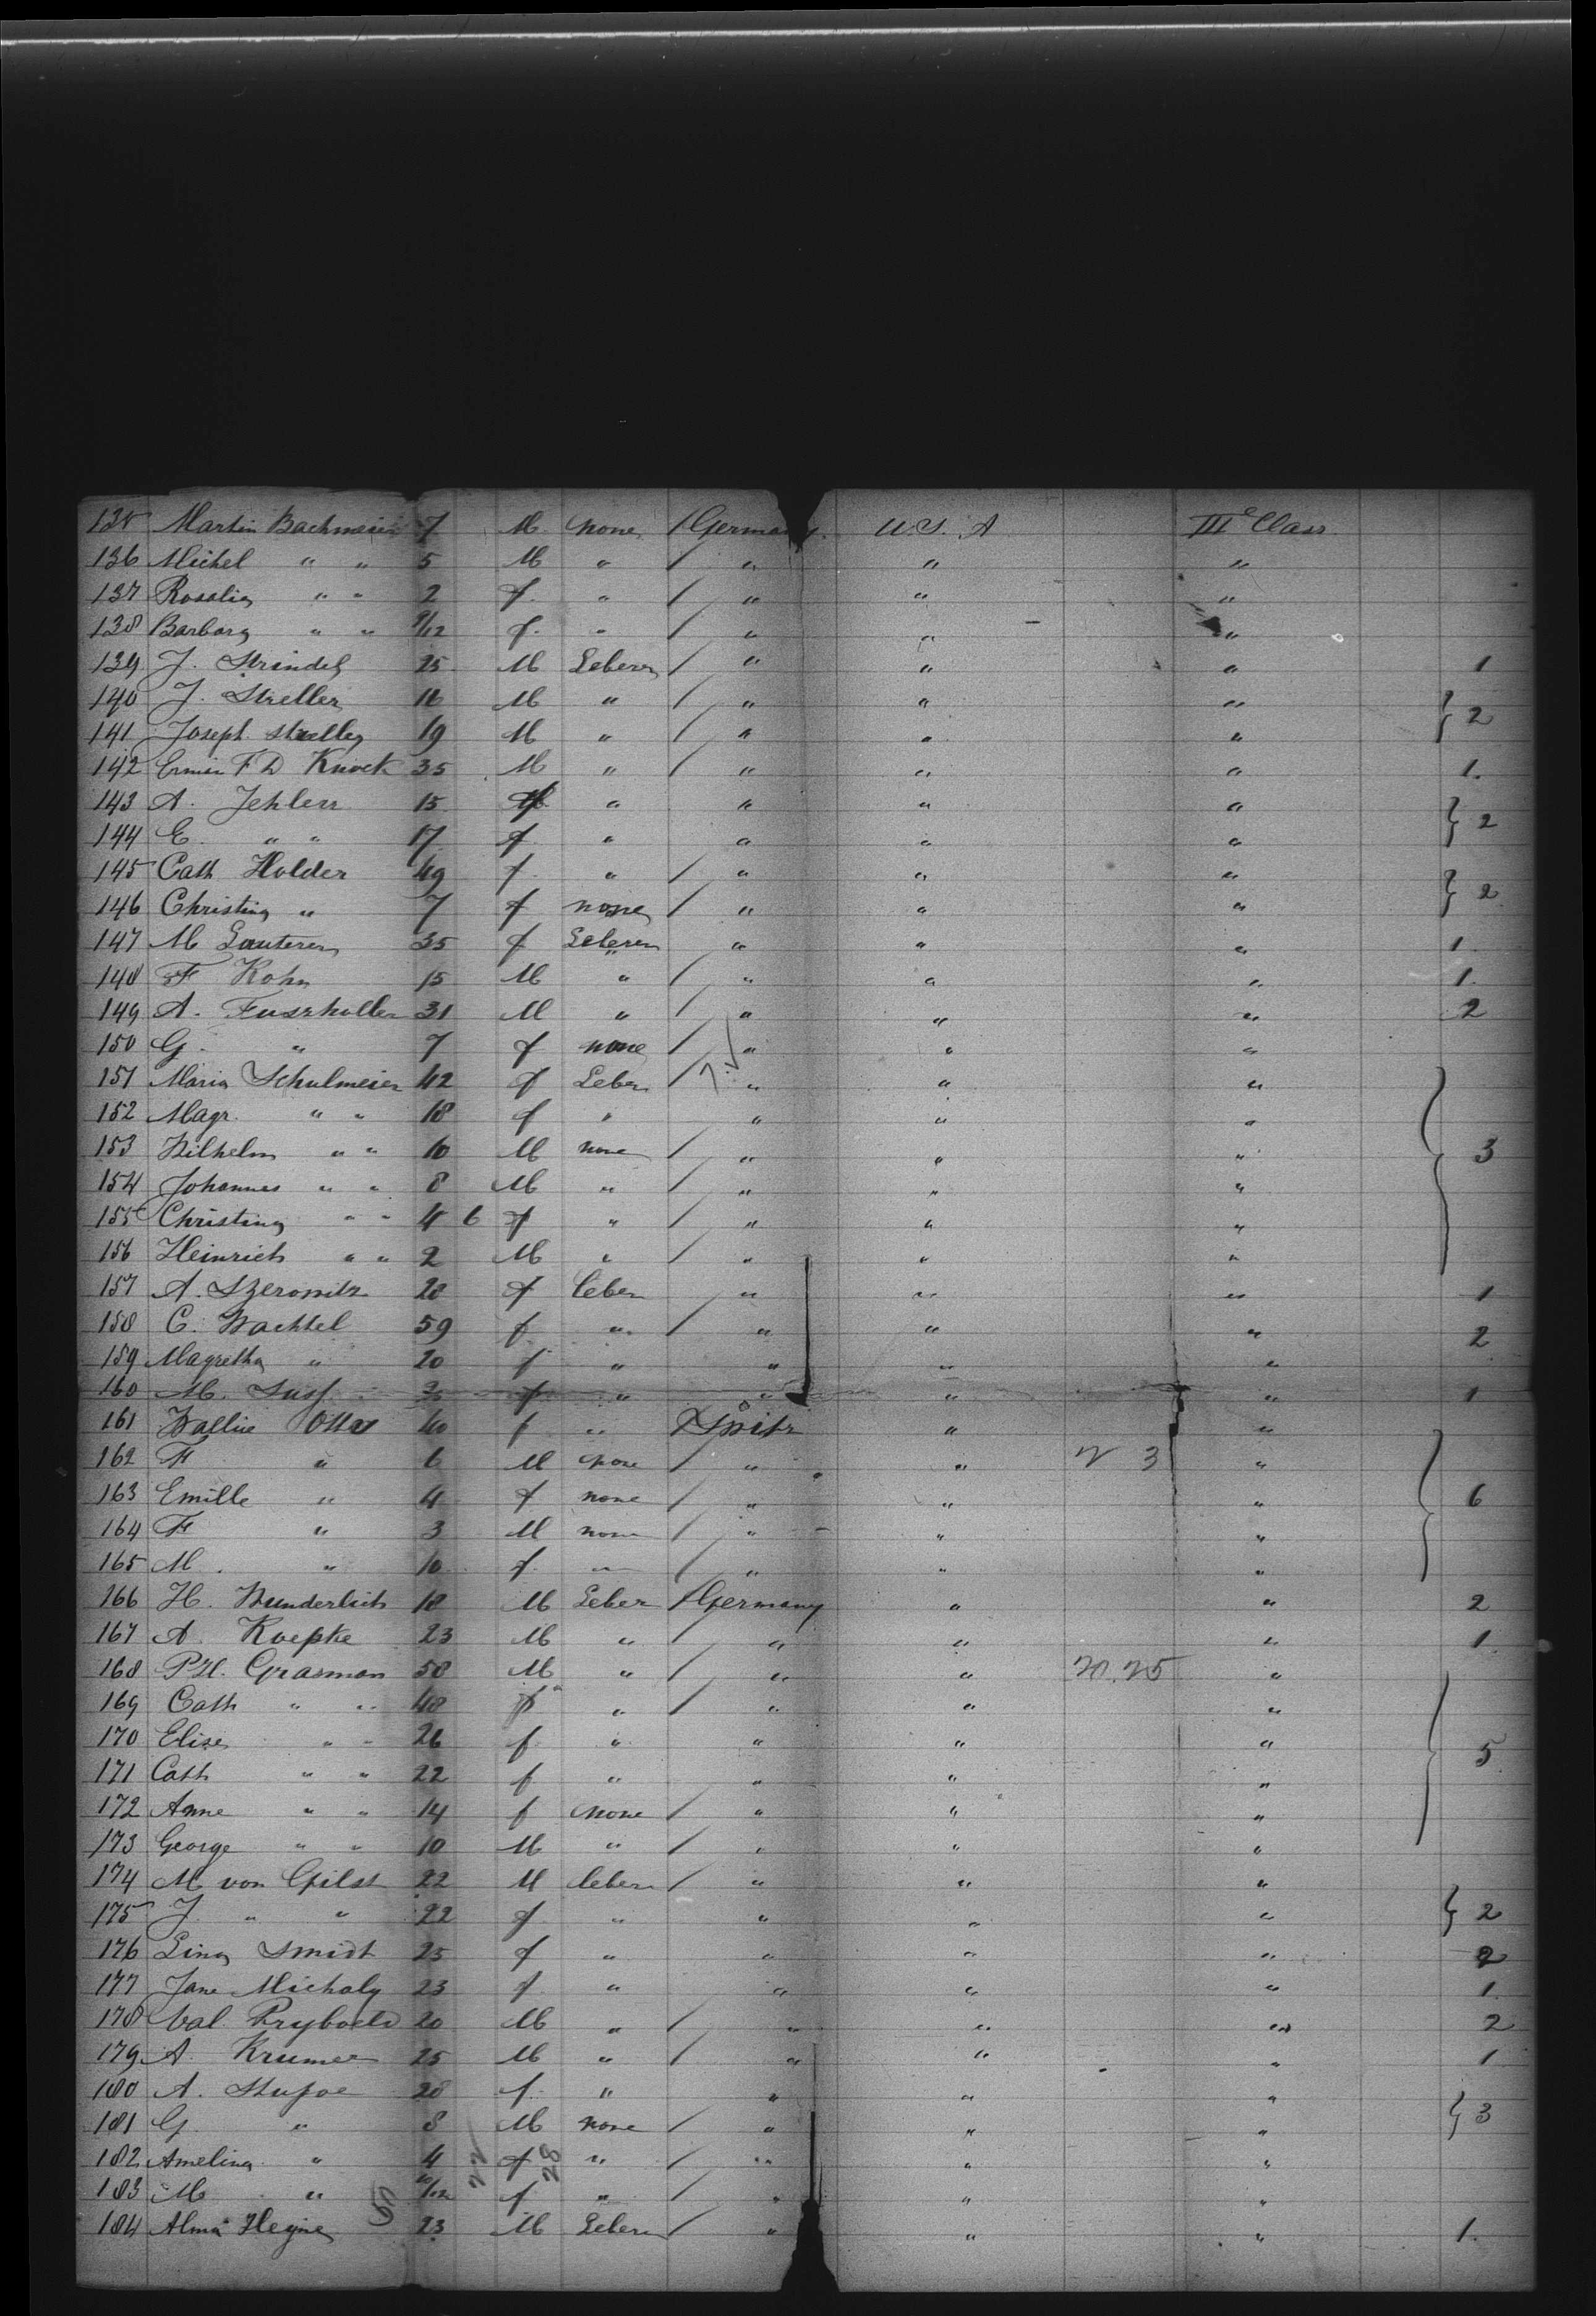 135 Martin Bachmeier 7 M none / Germany. U.S. A IIIe Class
136 Michel " " 5 M " / " " "
137 Rosalia " " 2 f. " / " " "
138 Barbara " " 9/12 f. " / " " "
139 J. Strindel 25 M Leberer / " " " 1
140 J. Streller 16 M " / " " " } 2
141 Joseph streller 19 M " / " " "
142 Erwin F D Knock 35 M " / " " " 1.
143 A. Jehlerr 15 " " " " } 2
144 E. " " 17 f " " " "
145 Cath Holder 49 f. " / " " " } 2
146 Christina " 7 f none / " " "
147 M Lauterer 35 f Leberer " " " 1.
148 F Kohn 15 M " / " " " 1.
149 A. Fuszholler 31 M " / " " " 2
150 G. " 7 f none / " " "
151 Maria Schulmeier 42 f Leber / " " "
152 Magr. " " 18 f " " " "
153 Wilhelm " " 10 M none / " " " } 3
154 Johannes " " 8 M " / " " "
155 Christina " " 4 6 f " / " " "
156 Heinrich " " 2 M " / " " "
157 A. Szeromitz 20 f leber " " " 1
158 C. Wachtel 59 f " / " " " 2
159 Magretha " 20 f " " " "
160 M. Suss f " " " " 1
161 Wallie Otto 40 f " " "
162 F " 6 M none / " " 2 3 "
163 Emille " 4 f none / " " " } 6
164 F " 3 M none / " " "
165 M. " 10 f. " / " " "
166 H. Wunderlich 18 M Leber / Germany " " 2
167 A Koepke 23 M " / " " " 1.
168 PH. Grasman 58 M " / " " 20.25 "
169 Cath " " 48 f " / " " "
170 Elise " " 26 f " " " " } 5
171 Cath " " 22 f " " " "
172 Anne " " 14 f none / " " "
173 George " " 10 M " / " " "
174 M von Gilst 22 M leber / " " "
175 J. " " 22 f " " " " } 2
176 Lina Smidt 25 f " " " " 2
177 Jane Michaly 23 f " " " " 1.
178 Val 20 M " / " " " 2
179 A. Krumer 25 M " / " " " 1
180 A. 28 f. " " " " } 3
181 G " 8 M none / " " "
182 Amelina " 4 22 f 28 " / " " "
183 M " 10/12 f " / " " "
184 Alma Heyne 50 23 M Leber / " " " 1.